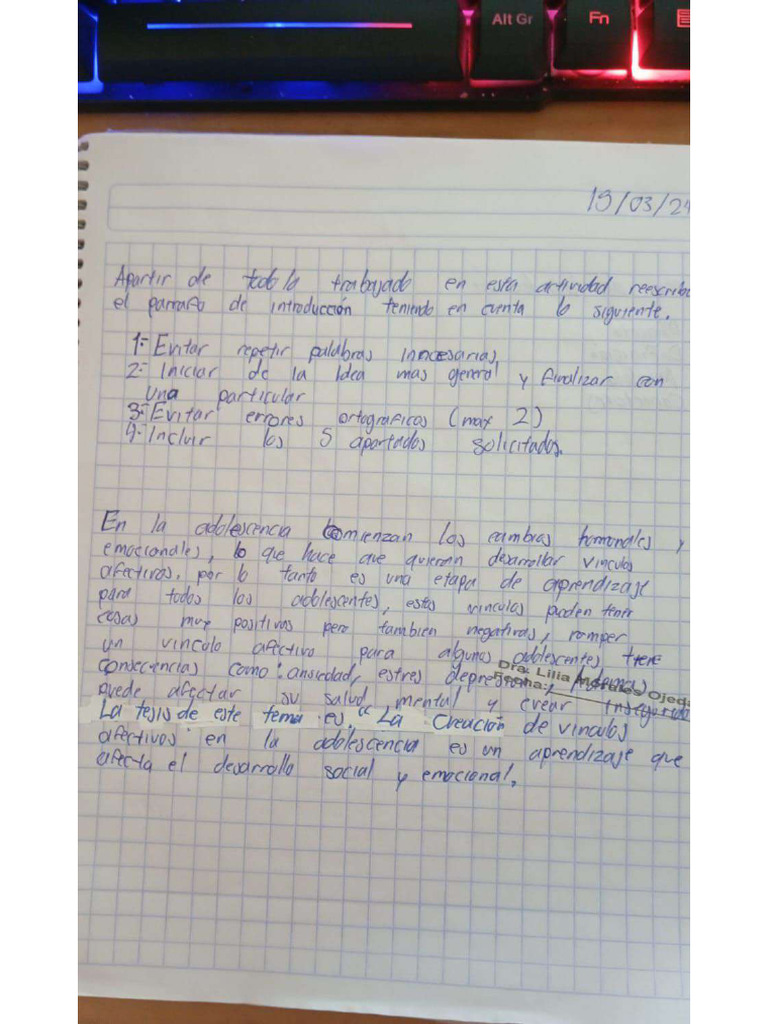 Alt Gr
Fn
19/03/2
Apartir de todo lo trabajado en esta actividad reescribe
el parrafo de introducción teniendo en cuenta lo siguiente.
1.- Evitar repetir palabras innecesarias
2.- Iniciar de la Idea mas general y finalizar con
una particular
3.- Evitar errores ortograficos (max 2)
4.- Incluir los 5 apartados solicitados.
En la adolescencia comienzan los cambios hormonales y
emocionales, lo que hace que quieran desarrollar vinculos
afectivos, por lo tanto es una etapa de aprendizaje
para todos los adolescentes, estos vinculos pueden tener
cosas muy positivas pero tambien negativas, romper
un vinculo afectivo para algunos adolescentes tiene
consecuencias como: ansiedad, estres, depresion, Ademas
Dra. Lilia Morales Ojeda
Fecha:
puede afectar su salud mental y crear
La tesis de este tema es "La Creación de vinculos
afectivos" en la adolescencia es un aprendizaje que
afecta el desarrollo social y emocional.